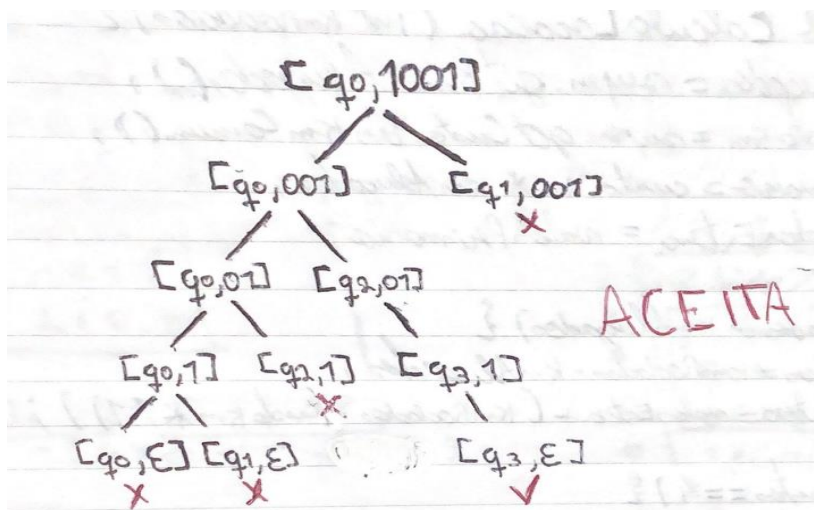 [q0,1001]
[q0,001] [q1,001]
x
[q0,01] [q2,01]
ACEITA
[q0,1] [q2,1] [q3,1]
x
[q0,ε] [q1,ε] [q3,ε]
x x ✓